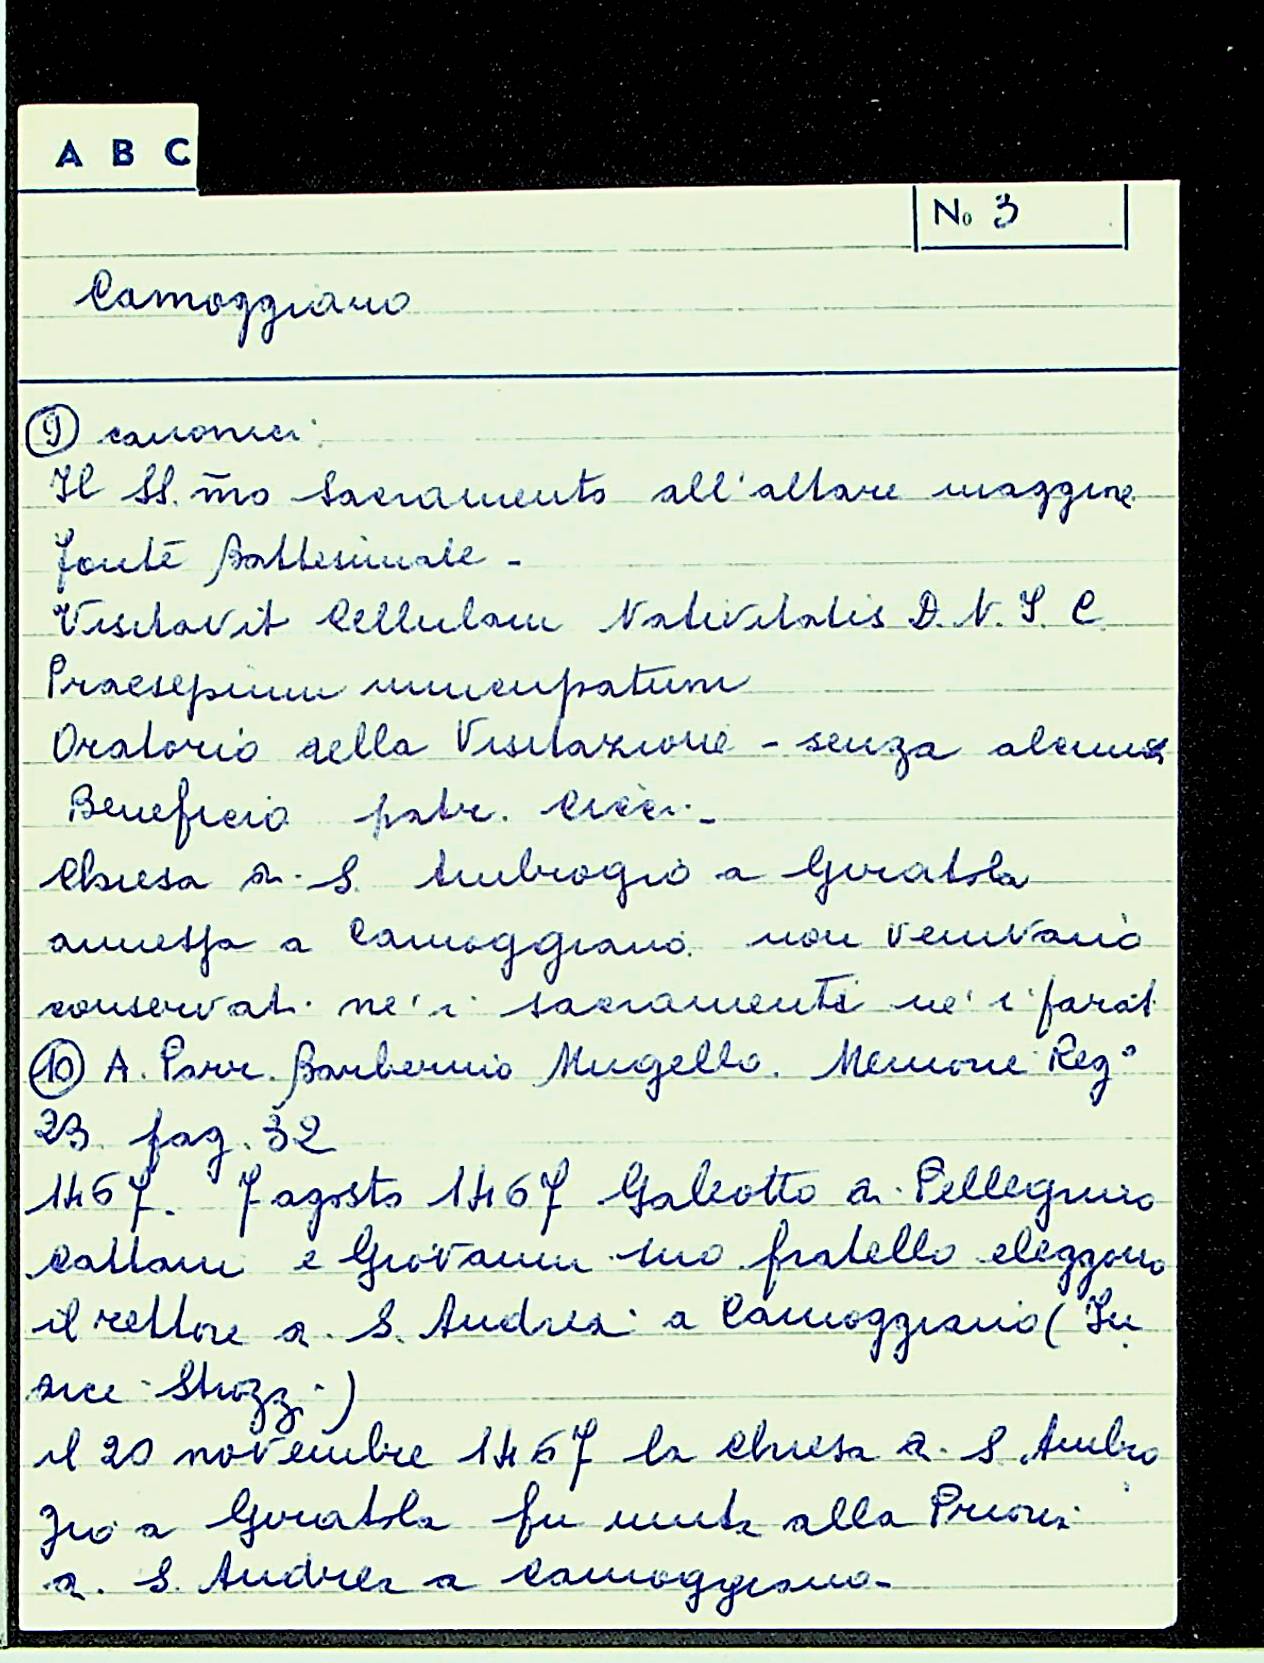 A B C
No 3
Camoggiano
9 canonici:
Il SS.mo Sacramento all'altare maggiore
fonte Battesimale -
Visitavit Cellulam Nativitatis D. N. J. C.
Praesepium nuncupatum
Oratorio della Visitazione - senza alcun
Beneficio patr. Cicci. -
Chiesa di S. Ambrogio a Giratola
annessa a Camoggiano. non venivano
conservati ne' i sacramenti ne' i parati
10 A. Parr. Barberino Mugello. Memorie Reg°
23 pag. 32
1467. 7 agosto 1467 Galeotto di Pellegrino
Cattani e Giovanni suo fratello eleggono
il rettore di S. Andrea a Camoggiano (In
dice Strozzi)
il 20 novembre 1467 la chiesa di S. Ambro
gio a Giratola fu unita alla Prioria
di S. Andrea a Camoggiano -